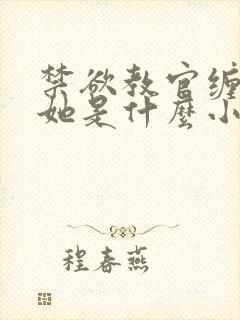 禁欲教官缠
她是什麼小
程春燕